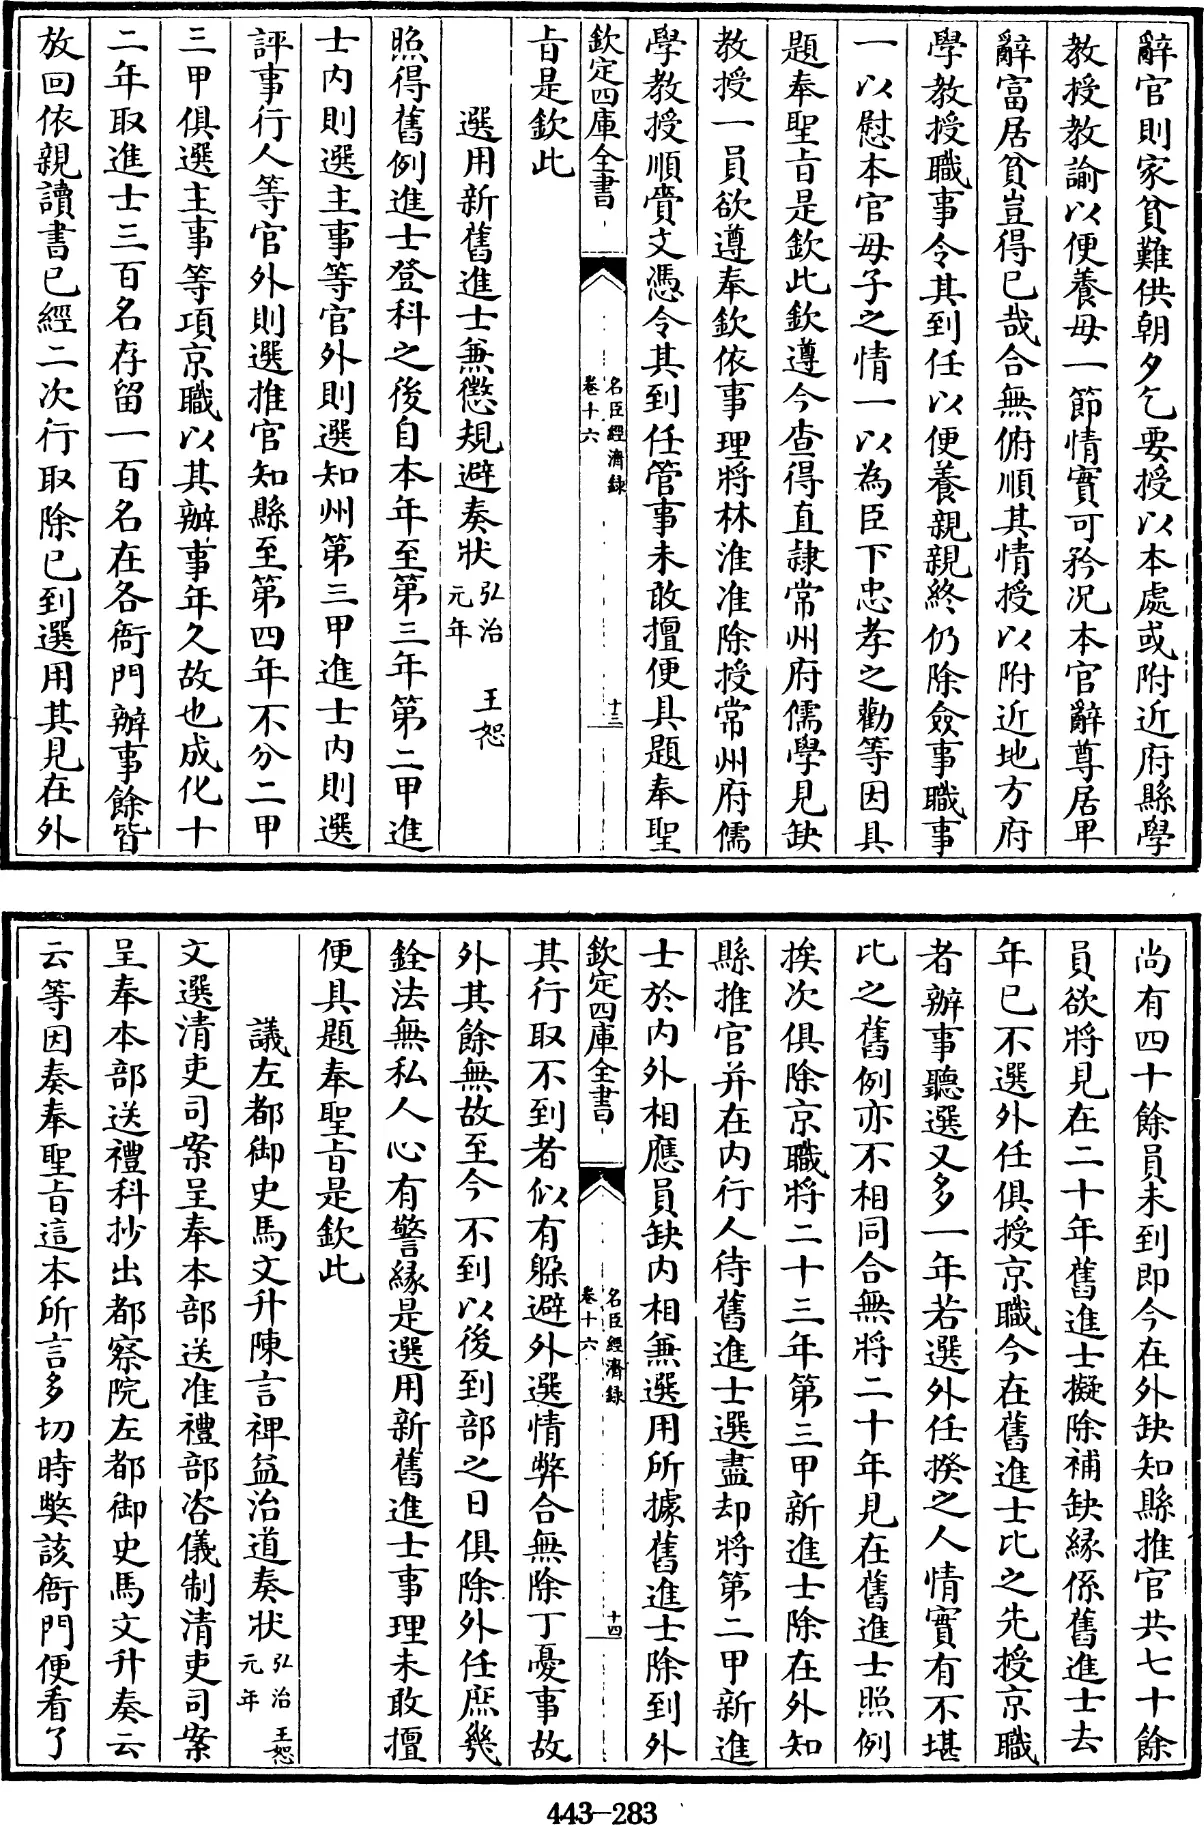 辭官則家貧難供朝夕乞要授以本處或附近府縣學
教授教諭以便養母一節情實可矜况本官辭尊居卑
辭富居貧豈得已哉合無俯順其情授以附近地方府
學教授職事令其到任以便養親親終仍除僉事職事
一以慰本官母子之情一以為臣下忠孝之勸等因具
題奉聖㫖是欽此欽遵今查得直隸常州府儒學見缺
教授一員欲遵奉欽依事理將林淮准除授常州府儒
學教授順賫文憑令其到任管事未敢擅便具題奉聖
欽定四庫全書
名臣經濟録
卷十六
十三
㫖是欽此
選用新舊進士兼懲規避奏狀 弘治元年 王恕
照得舊例進士登科之後自本年至第三年第二甲進
士内則選主事等官外則選知州第三甲進士内則選
評事行人等官外則選推官知縣至第四年不分二甲
三甲俱選主事等項京職以其辦事年久故也成化十
二年取進士三百名存留一百名在各衙門辦事餘皆
放回依親讀書已經二次行取除已到選用其見在外
尚有四十餘員未到即今在外缺知縣推官共七十餘
員欲將見在二十年舊進士擬除補缺緣係舊進士去
年已不選外任俱授京職今在舊進士比之先授京職
者辦事聽選又多一年若選外任揆之人情實有不堪
比之舊例亦不相同合無將二十年見在舊進士照例
挨次俱除京職將二十三年第三甲新進士除在外知
縣推官并在内行人待舊進士選盡却將第二甲新進
士於内外相應員缺内相兼選用所據舊進士除到外
欽定四庫全書
名臣經濟録
卷十六
十四
其行取不到者似有躲避外選情弊合無除丁憂事故
外其餘無故至今不到以後到部之日俱除外任庶幾
銓法無私人心有警緣是選用新舊進士事理未敢擅
便具題奉聖㫖是欽此
議左都御史馬文升陳言裨益治道奏狀 弘治元年 王恕
文選清吏司案呈奉本部送准禮部咨儀制清吏司案
呈奉本部送禮科抄出都察院左都御史馬文升奏云
云等因奏奉聖㫖這本所言多切時獘該衙門便看了
443-283